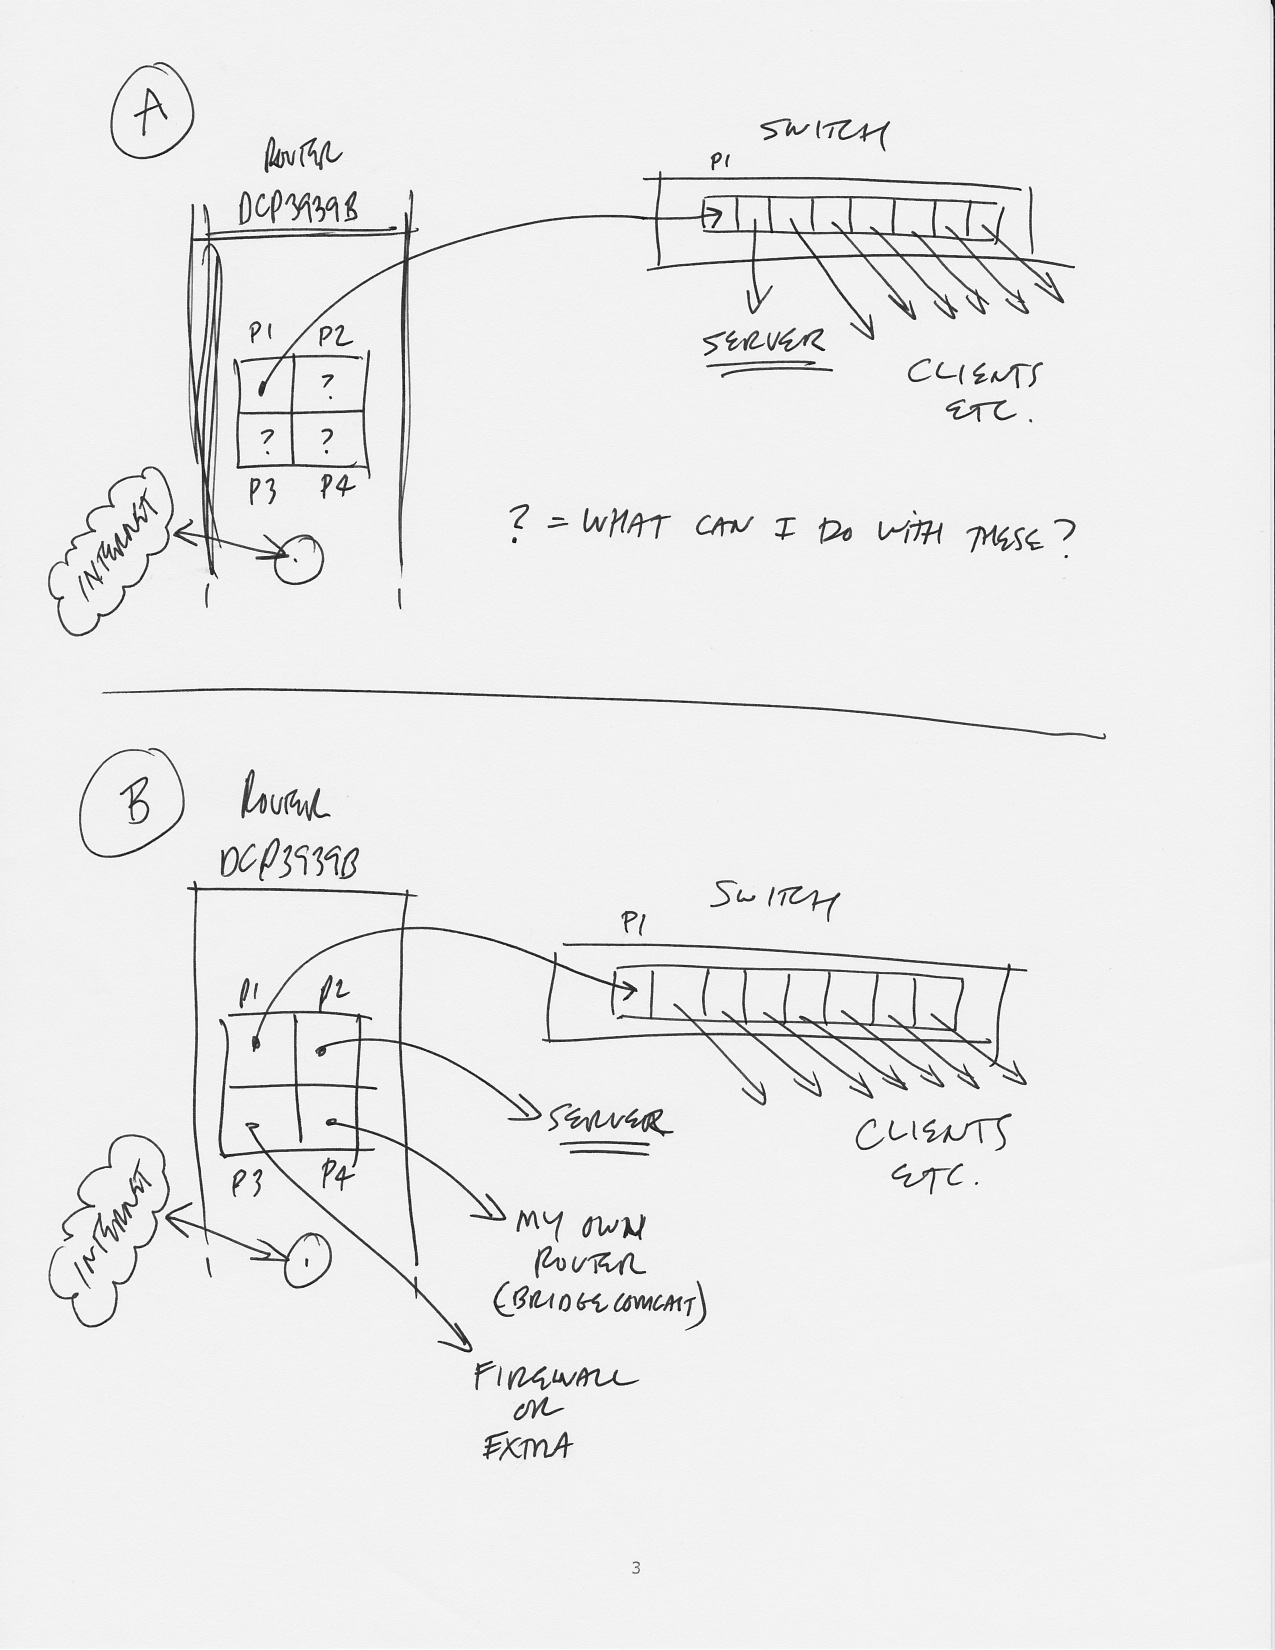 A
ROUTER
DCP3939B
SWITCH
P1
P1
P2
?
?
?
P3
P4
SERVER
CLIENTS
ETC.
INTERNET
? = WHAT CAN I DO WITH THESE?
B
ROUTER
DCP3939B
SWITCH
P1
P1
P2
P3
P4
SERVER
CLIENTS
ETC.
INTERNET
MY OWN
ROUTER
(BRIDGE COMCAST)
FIREWALL
OR
EXTRA
3